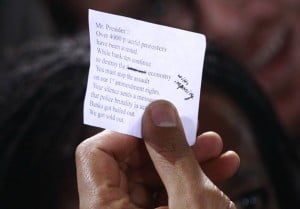 Mr. President:
Over 4000 p world protesters
have been a rested.
While bank ters continue
to destroy the economy
You must stop the assault
on our 1st amendment rights.
Your silence sends a message
that police brutality is
Banks got bailed out.
We got sold out.